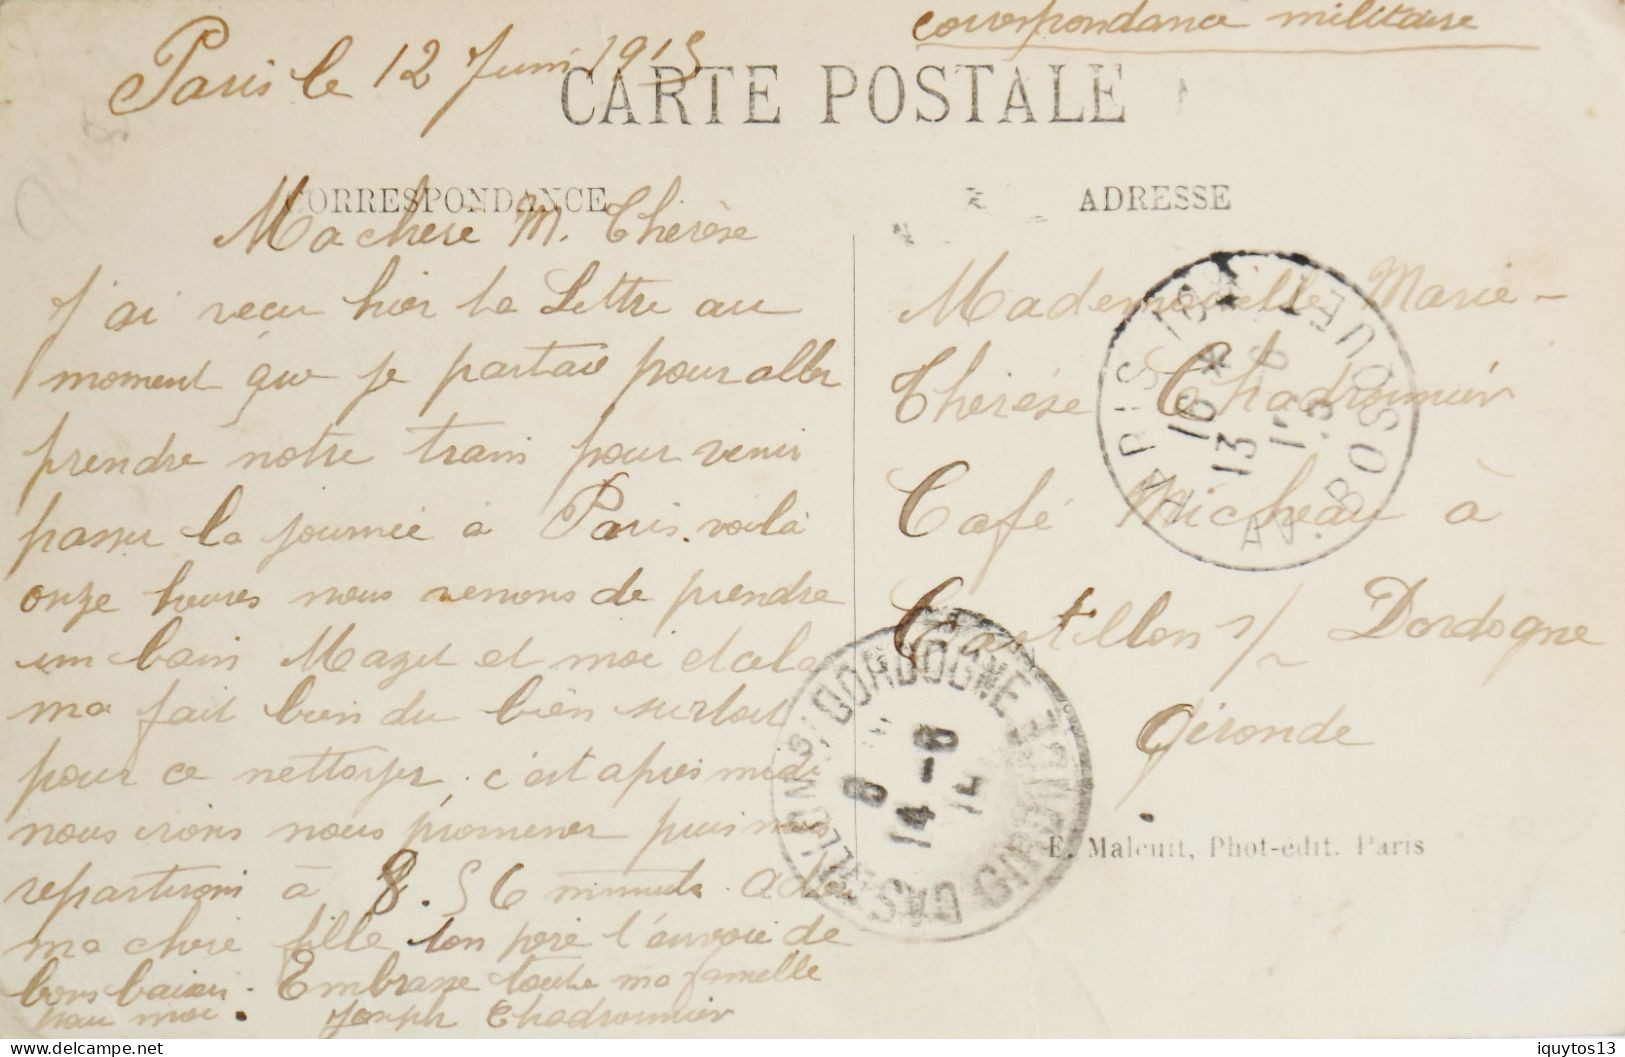 correspondance militaire
Paris le 12 Juin 1915
CARTE POSTALE
CORRESPONDANCE
ADRESSE
Ma chere M. Therèse
J'ai recu hier ta Lettre au
moment que je partais pour aller
prendre notre train pour venir
passer la journeé a Paris. voila
onze heures nous venons de prendre
un bain Mazet et moi et cela
ma fait bien du bien surtout
pour ce nettoyer. c'est apres midi
nous irons nous promener puis nous
repartirons à 8.56 minuts. adieu
ma chere fille ton pere t'envoie de
bons baisers. Embrasse toute ma famille
pour moi. Joseph Chadrounier
Mademoiselle Marie-
Therése Chadrounier
Café Micheau à
Castillon s/ Dordogne
Gironde
E. Malcuit, Phot-édit. Paris
PARIS
AV. BOSQUET
16 *
13
15
CASTILLON S/ DORDOGNE GIRONDE
8
14 -6
15
www.delcampe.net
iquytos13